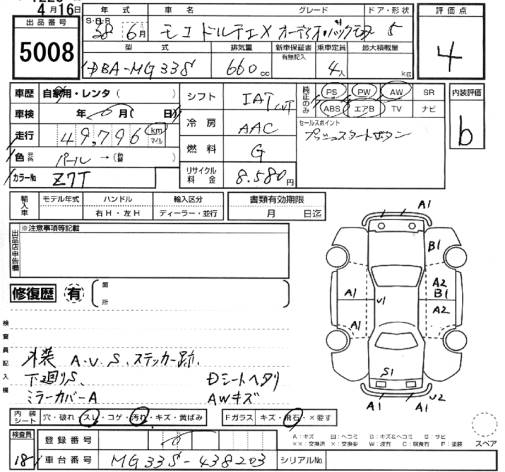 4月16日
出品番号
5008
年式 車名 グレード ドア・形状
S・H・R
6月 モコ ドルチェX オーディオ・バックモニター 5
型式 排気量 新車保証書 有無記入 乗車定員 最大積載量
DBA-MG33S 660cc 4人 kg
評価点
4
車歴 自家用・レンタ
車検 年 月( 日)
走行 49,796 km マイル
色 パール → (替)
カラーNo Z7T
シフト IAT CVT
冷房 AAC
燃料 G
リサイクル料金 8,580円
純正のみ PS PW AW SR
ABS エアB TV ナビ
セールスポイント
プッシュスタートボタン
内装評価
b
輸入車 モデル年式 ハンドル 輸入区分
右H・左H ディーラー・並行
書類有効期限
月 日迄
出品店申告欄 ※注意事項等記載
修復歴 有 箇所
検査員記入欄
外装 A.U.S. ステッカー跡、
下廻りS、 Dシートヘタリ
ミラーカバーA AWキズ
A1
B1
A2
A1 V1 B1
A2
A1
S1
A1 A1 V2
内装シート 穴・破れ・スレ・コゲ・汚れ・キズ・黄ばみ
Fガラス キズ・飛石・×要す
A：キズ U：凹ヘコミ B：キズ&ヘコミ S：サビ
スペア
検査員 18
登録番号
車台番号 MG33S-438203 シリアルNo.